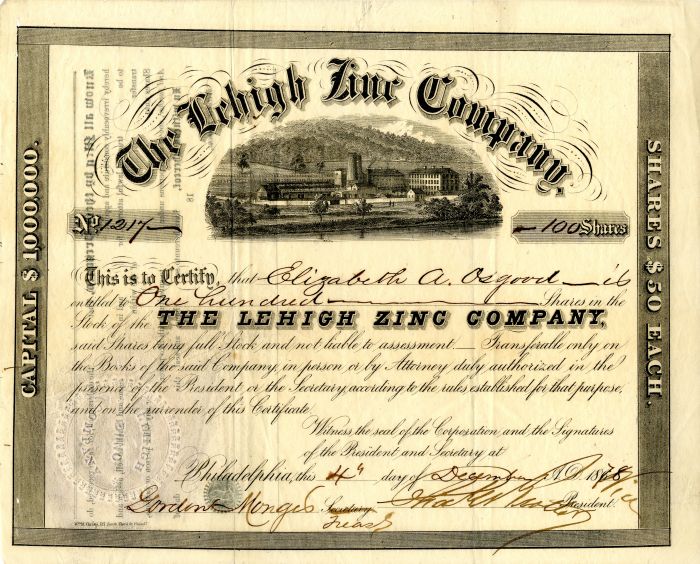 The Lehigh Zinc Company.
CAPITAL $1000,000.
SHARES $50 EACH.
No. 1217
100 Shares
This is to Certify that Elizabeth A. Osgood is
entitled to One hundred Shares in the
Stock of the THE LEHIGH ZINC COMPANY,
said Shares being full Stock and not liable to assessment. Transferable only on
the Books of the said Company, in person or by Attorney duly authorized in the
presence of the President or the Secretary, according to the rules established for that purpose,
and on the surrender of this Certificate.
Witness the seal of the Corporation, and the Signatures
of the President and Secretary at
Philadelphia, this 4th day of December A.D. 1868
Gordon Monges Secretary President.
Treas